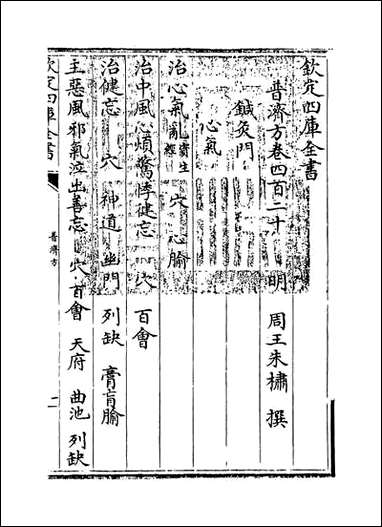 欽定四庫全書
普濟方卷四百二十　明　周王朱橚　撰
鍼灸門
心氣
治心氣亂　穴　心腧
治中風心煩驚悸健忘　穴　百會
治健忘　穴　神道　幽門　列缺　膏肓腧
主惡風邪氣泣出善忘　穴　百會　天府　曲池　列缺
欽定四庫全書
普濟方